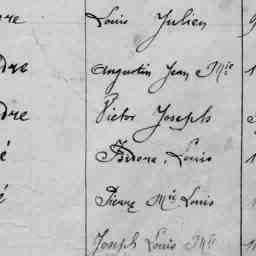 re Louis Julien
dre Augustin Jean Mie
dre Victor Joseph
é Isidore, Louis
é Pierre Mie Louis
Joseph Louis Mie